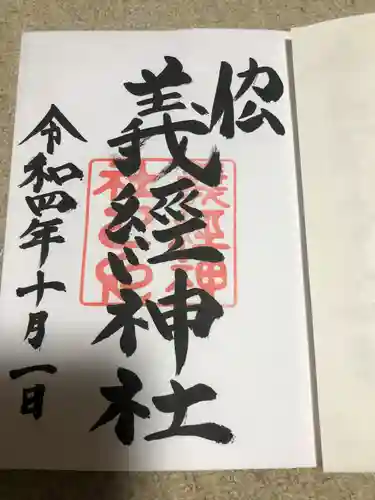 義經神社
令和四年十月一日
義經神
社之印